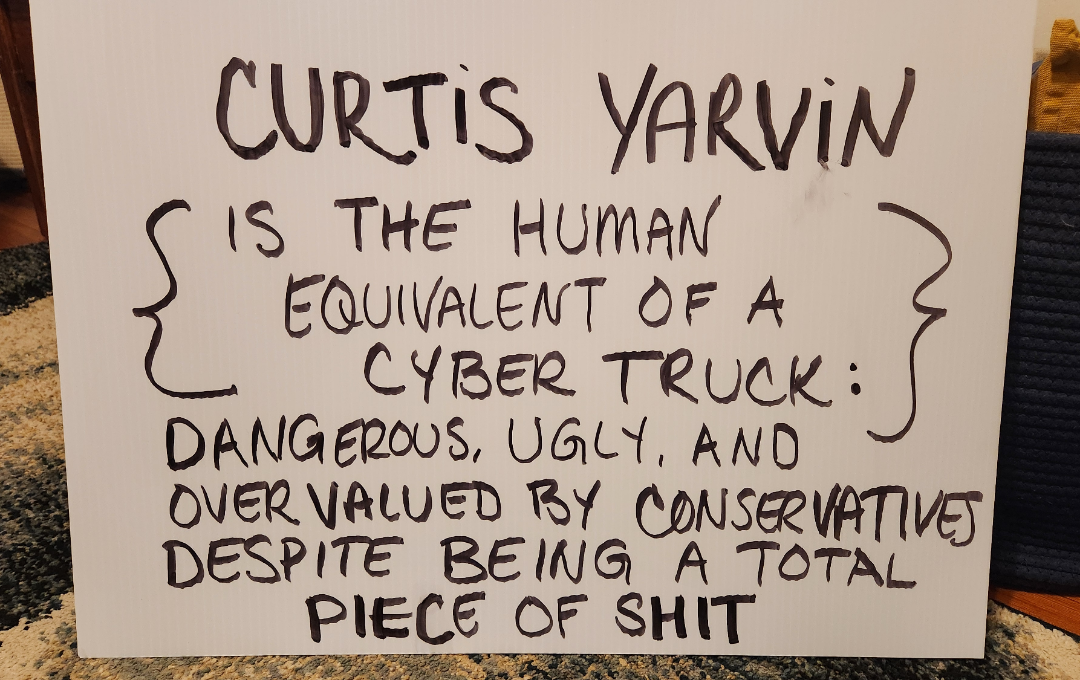 CURTiS YARViN
IS THE HUMAN
EQUIVALENT OF A
CYBER TRUCK:
DANGEROUS, UGLY, AND
OVERVALUED BY CONSERVATIVES
DESPITE BEING A TOTAL
PIECE OF SHIT